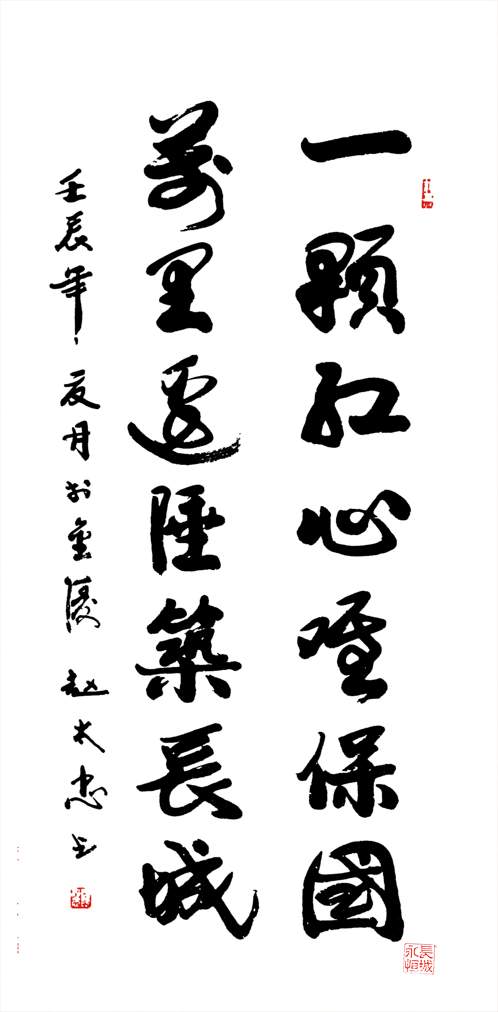 一顆紅心堅保國
萬里邊陲築長城
壬辰年夏月於金陵 赵太忠书
長城永恒